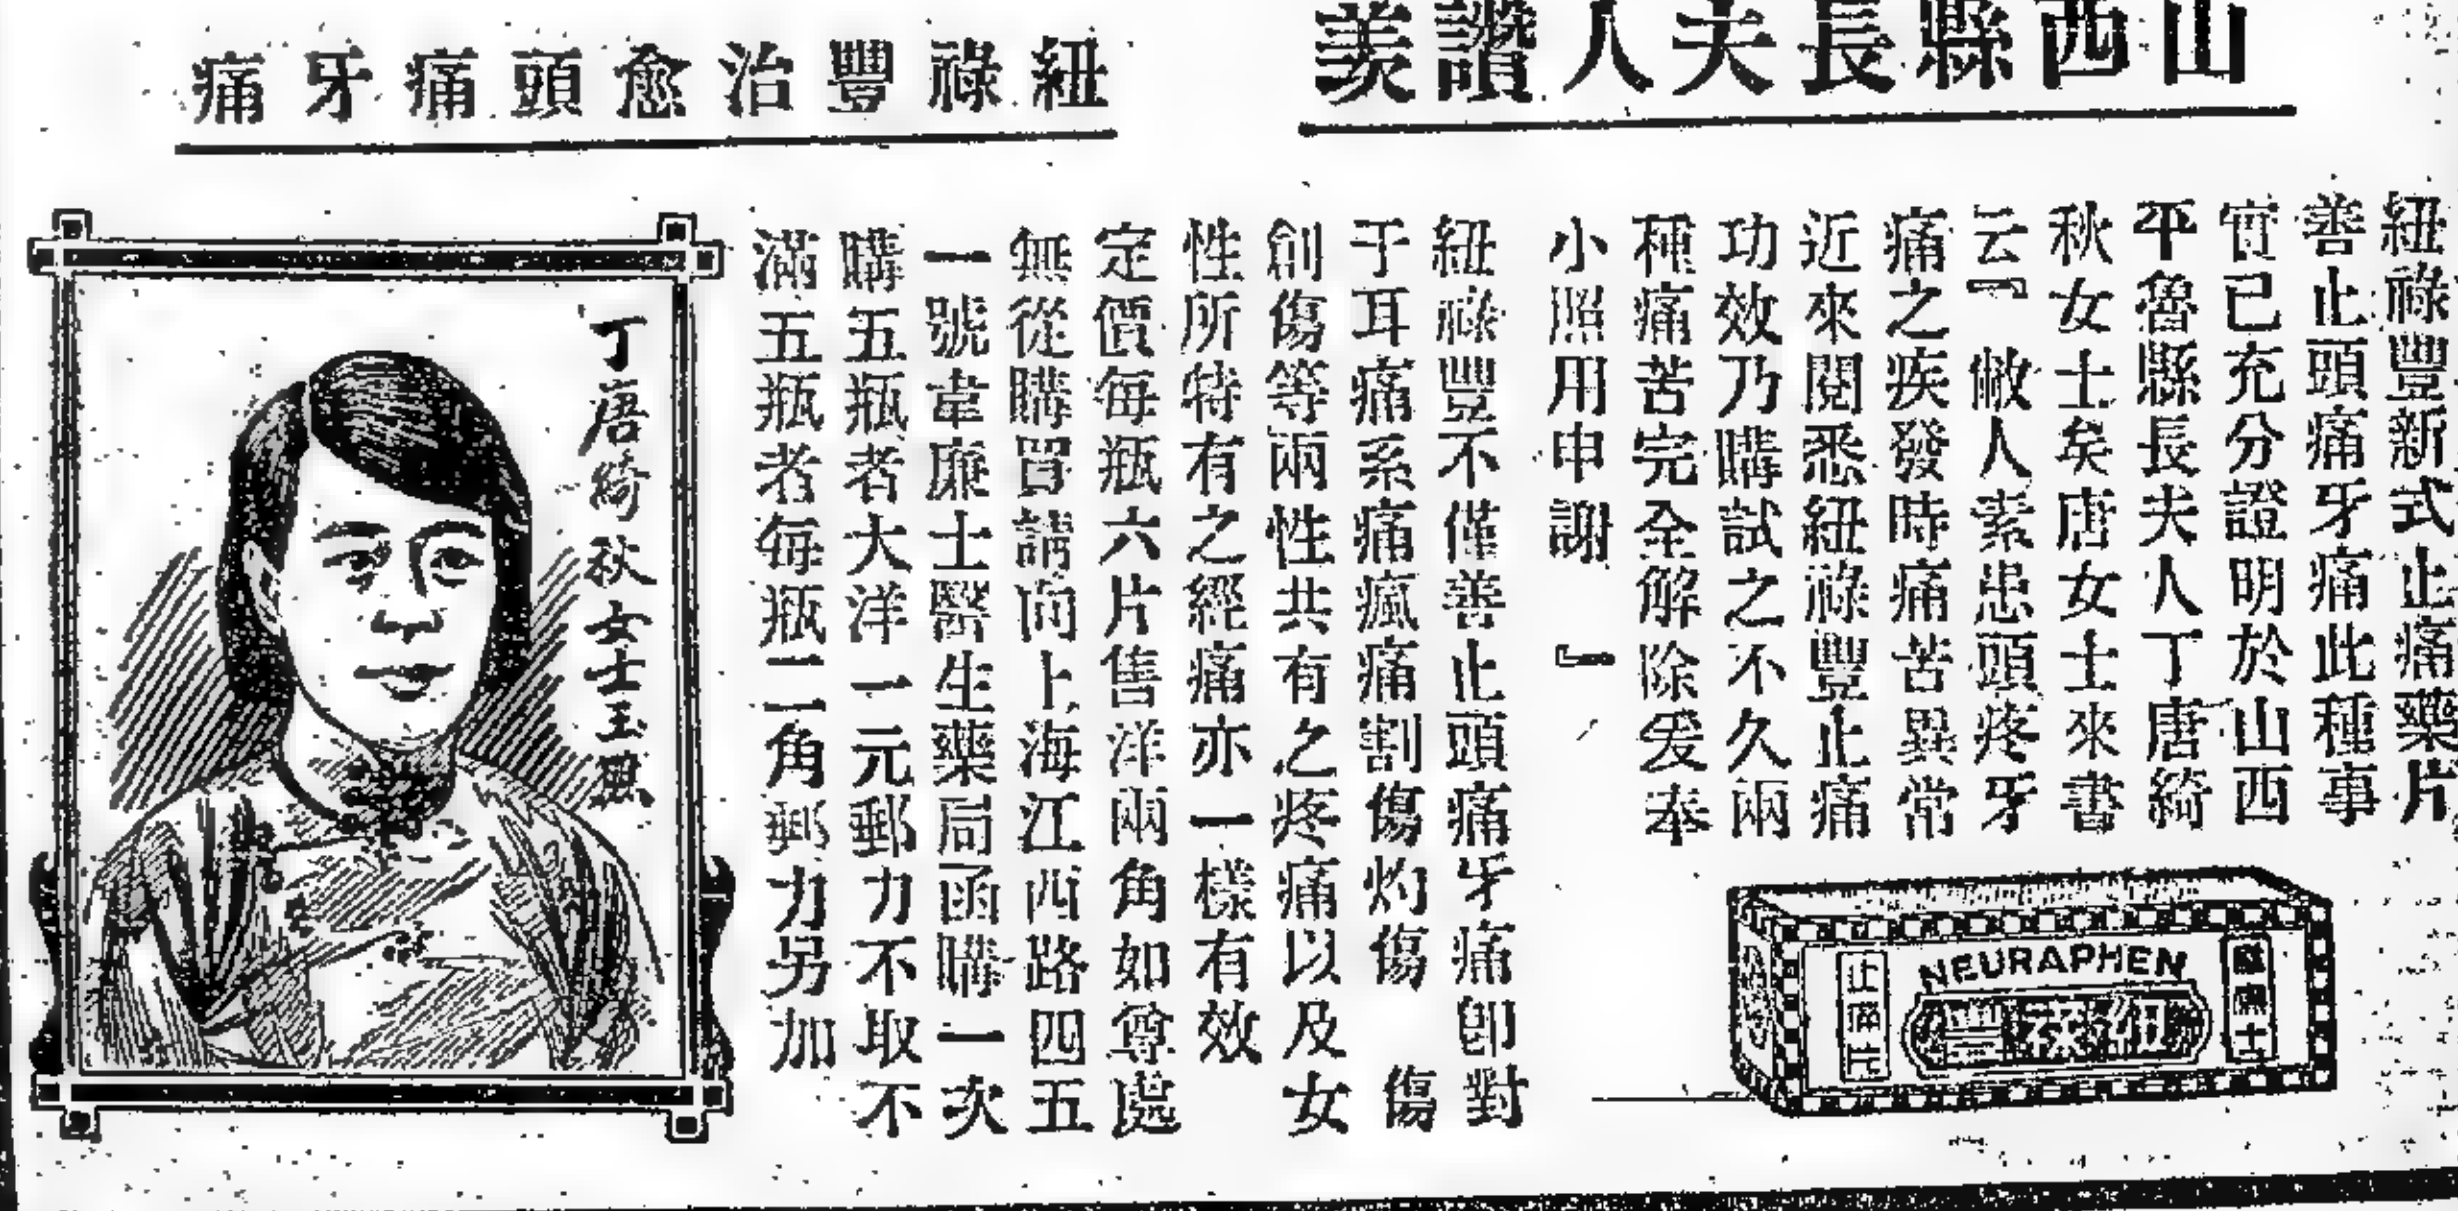 山西縣長夫人讚美
紐祿豐治愈頭痛牙痛
紐祿豐新式止痛藥片
善止頭痛牙痛此種事
實已充分證明於山西
平魯縣長夫人丁唐綺
秋女士矣唐女士來書
云『敝人素患頭疼牙
痛之疾發時痛苦異常
近來閱悉紐祿豐止痛
功效乃購試之不久兩
種痛苦完全解除爰奉
小照用申謝』
紐祿豐不僅善止頭痛牙痛卽對
于耳痛系痛瘋痛割傷灼傷 傷
創傷等兩性共有之疼痛以及女
性所特有之經痛亦一樣有效
定價每瓶六片售洋兩角如尊處
無從購買請向上海江西路四五
一號韋廉士醫生藥局函購一次
購五瓶者大洋一元郵力不取不
滿五瓶者每瓶二角郵力另加
丁唐綺秋女士玉照
NEURAPHEN
紐祿豐
止痛片